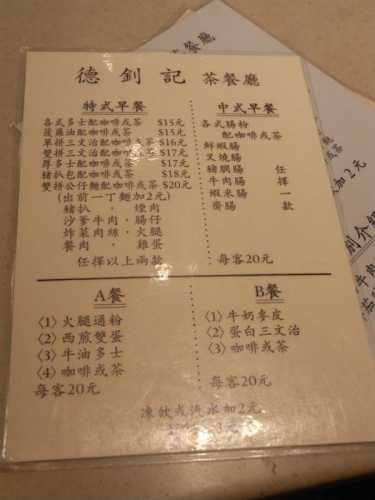 德釗記 茶餐廳
特式早餐
各式多士配咖啡或茶 $15元
菠蘿油配咖啡或茶 $15元
單拼三文治配咖啡或茶 $16元
雙拼三文治配咖啡或茶 $17元
厚多士配咖啡或茶 $17元
豬扒包配咖啡或茶 $18元
雙拼公仔麵配咖啡或茶 $20元
(出前一丁麵加2元)
豬扒 · 煙肉
沙爹牛肉 · 腸仔
炸菜肉絲 · 火腿
餐肉 · 雞蛋
任擇以上兩款
中式早餐
各式腸粉
配咖啡或茶
鮮蝦腸
叉燒腸
豬膶腸
牛肉腸
蝦米腸
齋腸
任擇一款
每客20元
A餐
〈1〉火腿通粉
〈2〉西煎雙蛋
〈3〉牛油多士
〈4〉咖啡或茶
每客20元
B餐
〈1〉牛奶麥皮
〈2〉蛋白三文治
〈3〉咖啡或茶
每客20元
凍飲或汽水加2元
餐廳
或茶
加2元
別介紹
牛肉